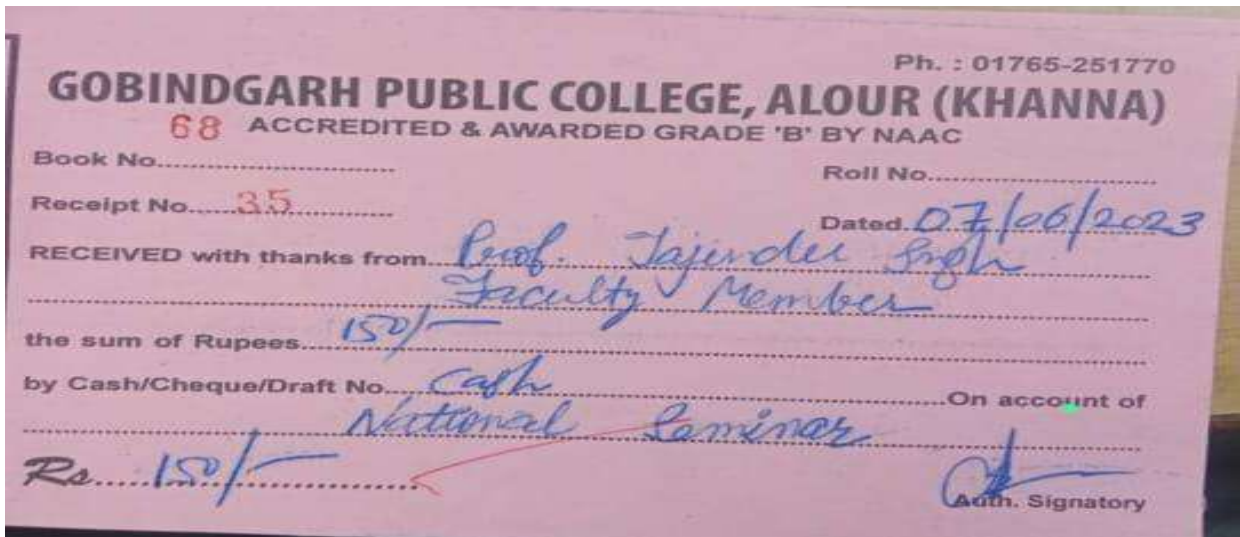 Ph. : 01765-251770
GOBINDGARH PUBLIC COLLEGE, ALOUR (KHANNA)
68 ACCREDITED & AWARDED GRADE 'B' BY NAAC
Book No.
Roll No.
Receipt No. 35
Dated 07/06/2023
RECEIVED with thanks from Prof. Tajinder Singh
Faculty Member
the sum of Rupees 150/-
by Cash/Cheque/Draft No. Cash On account of
National Seminar
Rs. 150/-
Auth. Signatory